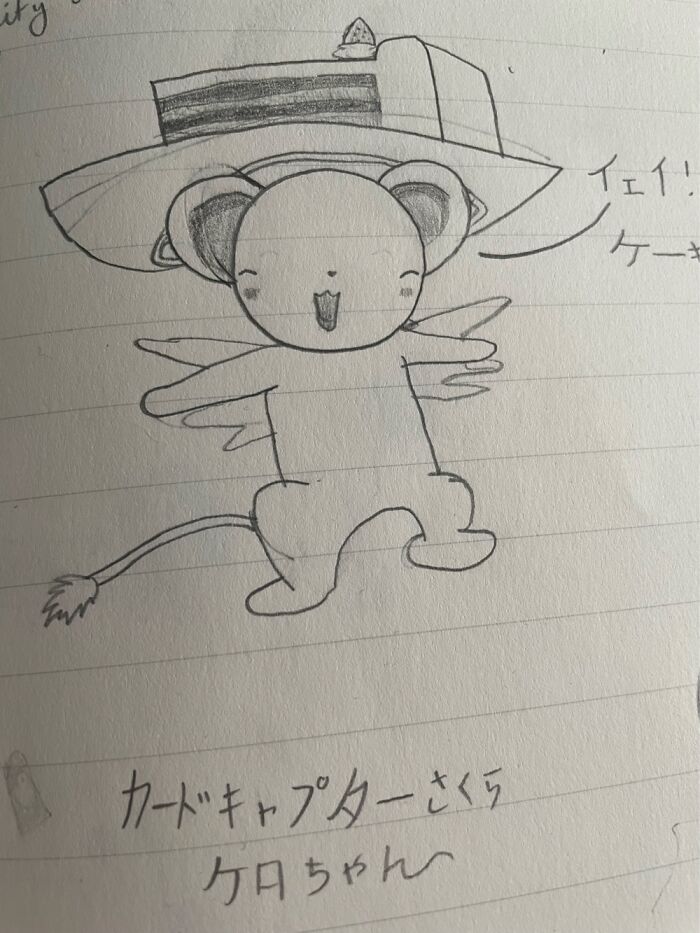 イェイ!
カードキャプターさくら
ケロちゃん〜